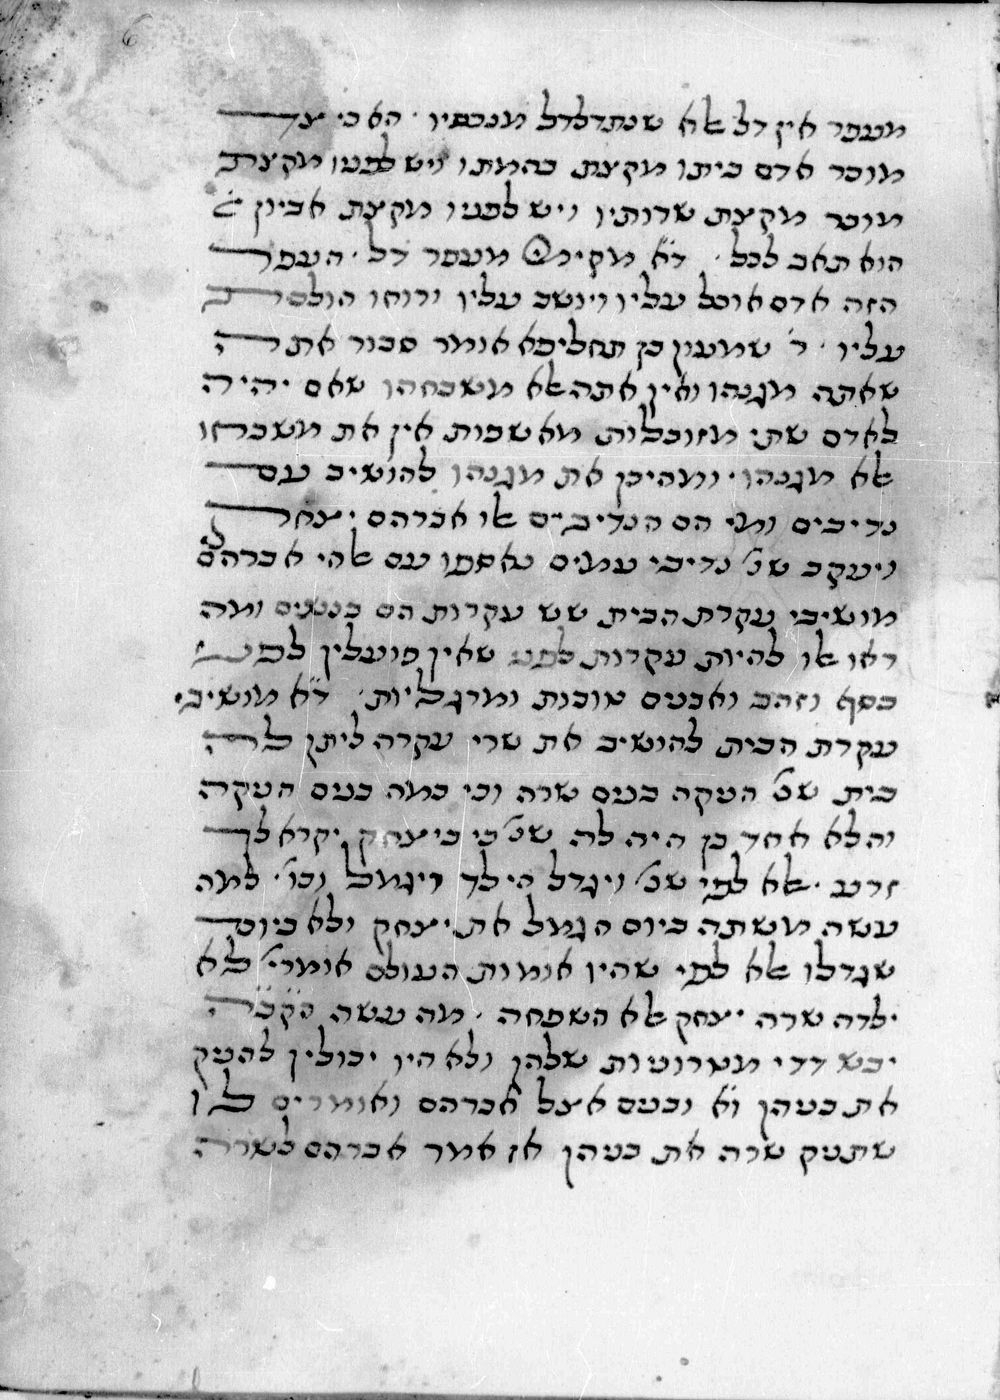 6
מעפר אין דל אלא שנתדלדל מנכסיו · הא כי צד
מוכר אדם ביתו מקצת בהמתו ויש לפניו מקצת
מוכר מקצת שדותיו ויש לפניו מקצת אביון
הוא תאב לכל · ד״א מקימי מעפר דל · העפר
הזה אדם אוכל עליו ויושב עליו ורוחו הולכת
עליו · ר׳ שמעון בן תחליפא אומר סבור אתה
שאתה מגנהו ואין אתה אלא משבחהו שאם יהיה
לאדם שתי מזובלות מאשפות אין את משבחו
אלא מגנהו · ומהיכן את מגנהו להושיב עם
נדיבים ומי הם הנדיבים אלו אברהם יצחק
ויעקב שנ׳ נדיבי עמים נאספו עם אלהי אברהם
מושיבי עקרת הבית שש עקרות הם בנשים ומה
ראו אלו להיות עקרות שאין פועלין
כסף וזהב ואבנים טובות ומרגליות · ד״א מושיבי
עקרת הבית להושיב את שרי עקרה ליתן לה
בית שנ׳ הניקה בנים שרה וכי כמה בנים הניקה
והלא אחד בן היה לה שנ׳ כי ביצחק יקרא לך
זרע · אלא לפי שנ׳ ויגדל הילד ויגמל וכו׳ · למה
עשה משתה ביום הגמל את יצחק ולא ביום
שגדלו אלא לפי שהיו אומות העולם אומרי׳ לא
ילדה שרה יצחק אלא השפחה · מה עשה הקב״ה
יבש דדי מטרוניות שלהן ולא היו יכולין להניק
את בניהן ובאים אצל אברהם ואומרים לו
שתניק שרה את בניהן אז אמר אברהם לשרה